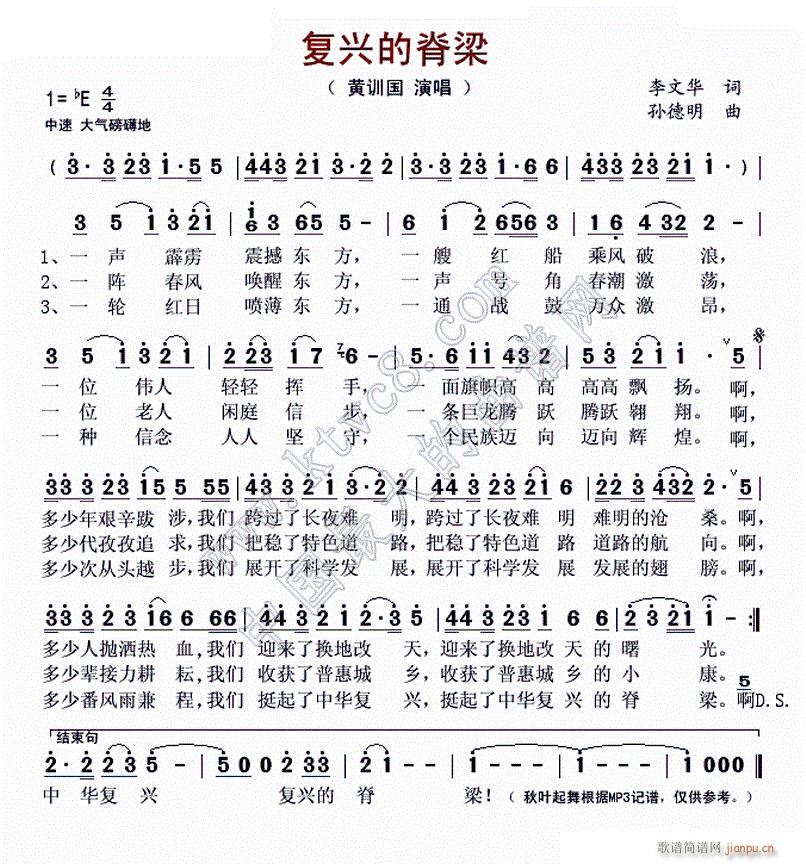 复兴的脊梁
（ 黄训国 演唱 ）
李文华 词
1=♭E 4/4
孙德明 曲
中速 大气磅礴地
( 3·3 23 1·5 5 | 443 21 3·2 2 | 3·3 23 1·6 6 | 433 23 21 1· ) |
3 5 1 3 21 | 1/6 3 65 5 - | 6 1 2 656 3 | 1 6 4 32 2 - |
1、一 声 霹雳 震撼 东 方， 一 艘 红 船 乘风 破 浪，
2、一 阵 春风 唤醒 东 方， 一 声 号 角 春潮 激 荡，
3、一 轮 红日 喷薄 东 方， 一 通 战 鼓 万众 激 昂，
3 5 1 3 21 | 2 23 1 7 6 - | 5·6 11 43 2 | 5 3 21 1· 5 |
一 位 伟人 轻轻 挥 手， 一 面旗帜高 高 高高 飘 扬。啊，
一 位 老人 闲庭 信 步， 一 条巨龙腾 跃 腾跃 翱 翔。啊，
一 种 信念 人人 坚 守， 一 个民族迈 向 迈向 辉 煌。啊，
33 3 23 15 5 55 | 43 3 21 3·2 2 | 44 3 23 21 6 | 22 3 432 2· 5 |
多少年艰辛跋 涉，我们 跨过了长夜难 明，跨过了长夜难 明 难明的沧 桑。啊，
多少代孜孜追 求，我们 把稳了特色道 路，把稳了特色道 路 道路的航 向。啊，
多少次从头越 步，我们 展开了科学发 展，展开了科学发 展 发展的翅 膀。啊，
33 3 23 16 6 66 | 44 3 21 2·3 5 | 44 3 23 1 6 6 | 2 23 21 1 - :|
多少人抛洒热 血，我们 迎来了换地改 天，迎来了换地改 天 的 曙 光。
多少辈接力耕 耘，我们 收获了普惠城 乡，收获了普惠城 乡 的 小 康。
5
多少番风雨兼 程，我们 挺起了中华复 兴，挺起了中华复 兴 的 脊 梁。啊D.S.
结束句
2·2 23 5 - | 5 0 0 2 33 | 2 - 2 - | 1 - - - | 1 - - - | 1 000 ‖
中 华复 兴 复兴的 脊 梁！（ 秋叶起舞根据MP3记谱，仅供参考。）
www.ktvc8.com
中国最大的曲谱网
歌谱简谱网
jianpu.cn